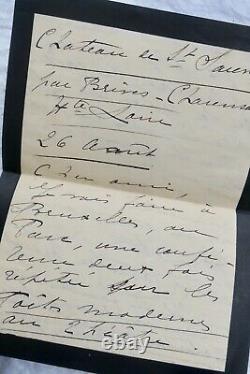 Chateau de St
par Brives - Charensac
Hte Loire
26 Août
Cher ami,
Je vais faire à
Bruxelles, au
Parc, une confé-
rence deux fois
répétée sur les
Poëts modernes
au théâtre.